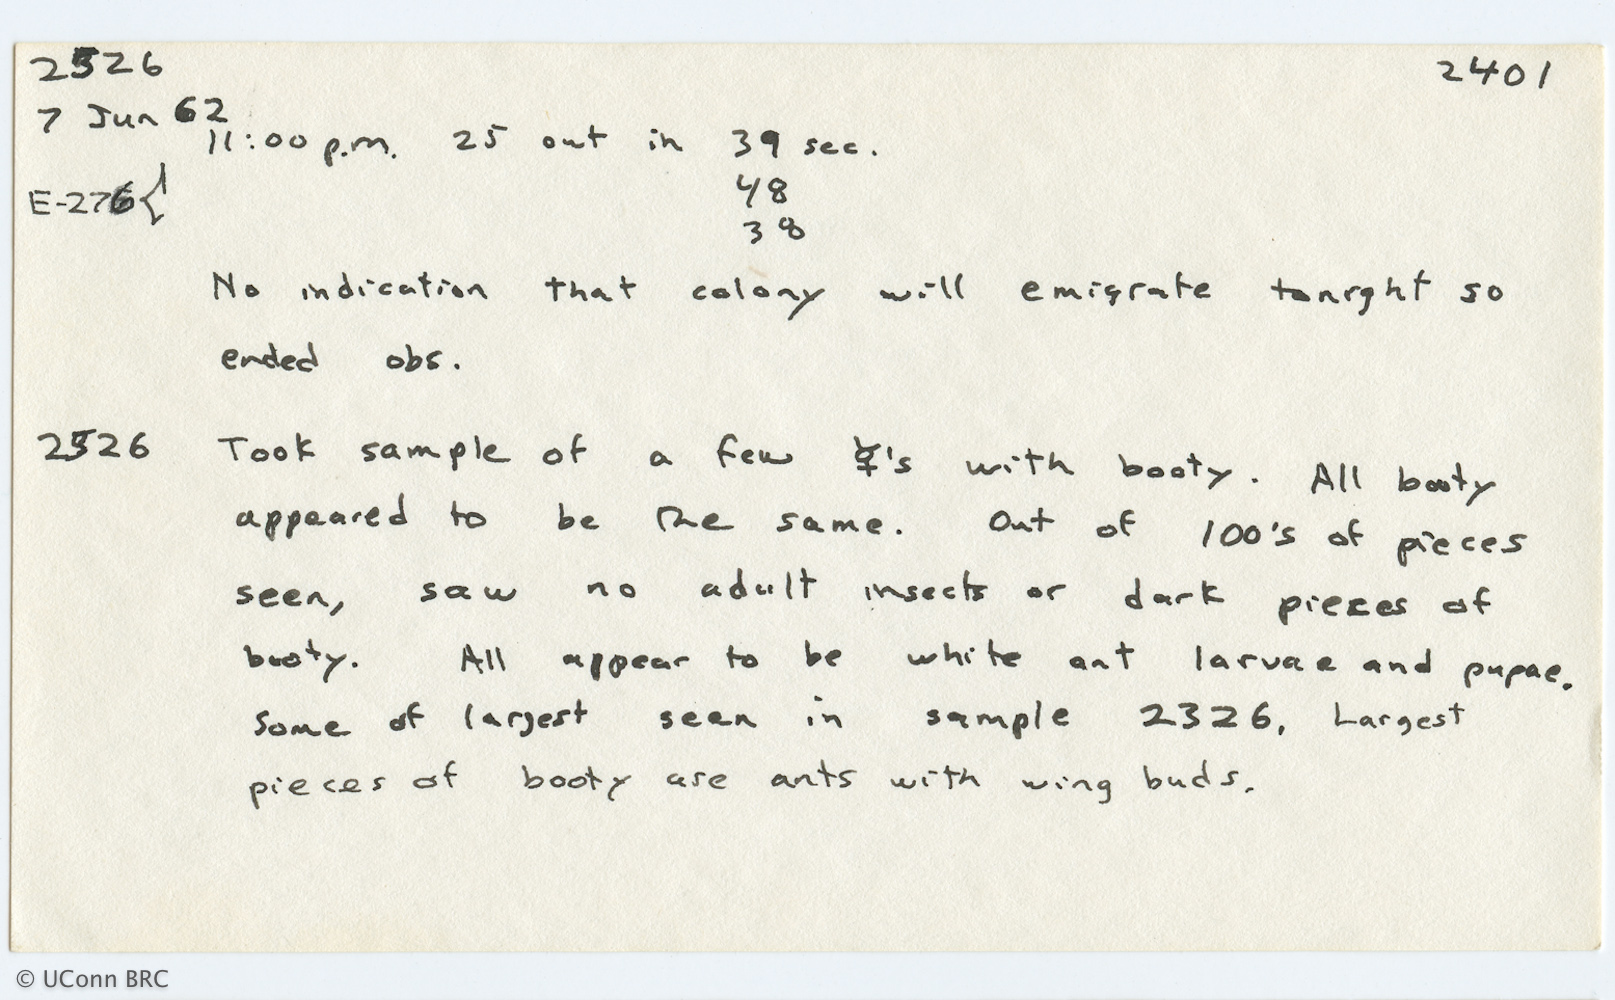 2526
2401
7 Jun 62
11:00 p.m. 25 out in 39 sec.
E-276
48
38
No indication that colony will emigrate tonight so
ended obs.
2526 Took sample of a few ☿'s with booty. All booty
appeared to be the same. Out of 100's of pieces
seen, saw no adult insects or dark pieces of
booty. All appear to be white ant larvae and pupae.
Some of largest seen in sample 2326. Largest
pieces of booty are ants with wing buds.
© UConn BRC